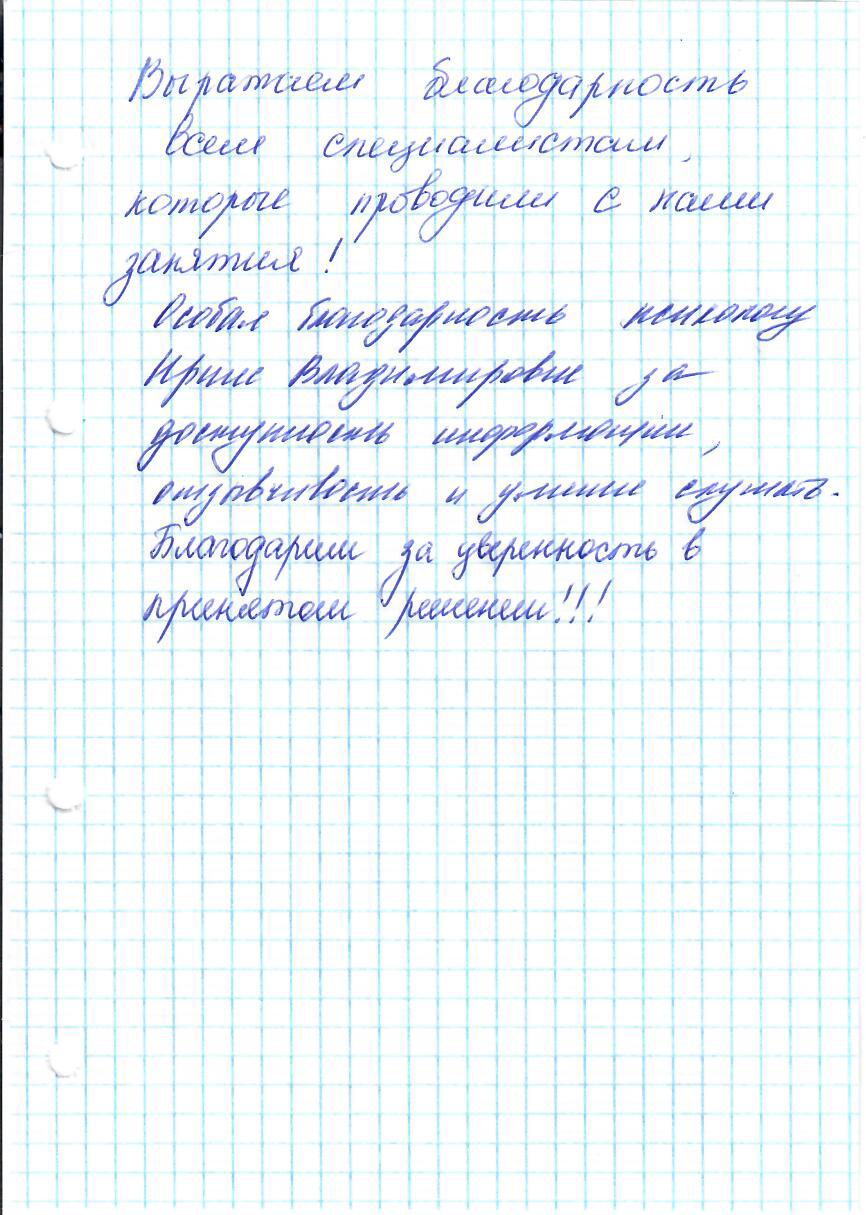 Выражаем благодарность
всем специалистам,
которые проводили с нами
занятия!
Особая благодарность психологу
Ирине Владимировне за
доступность информации,
отзывчивость и умение слушать.
Благодарим за уверенность в
принятом решении!!!